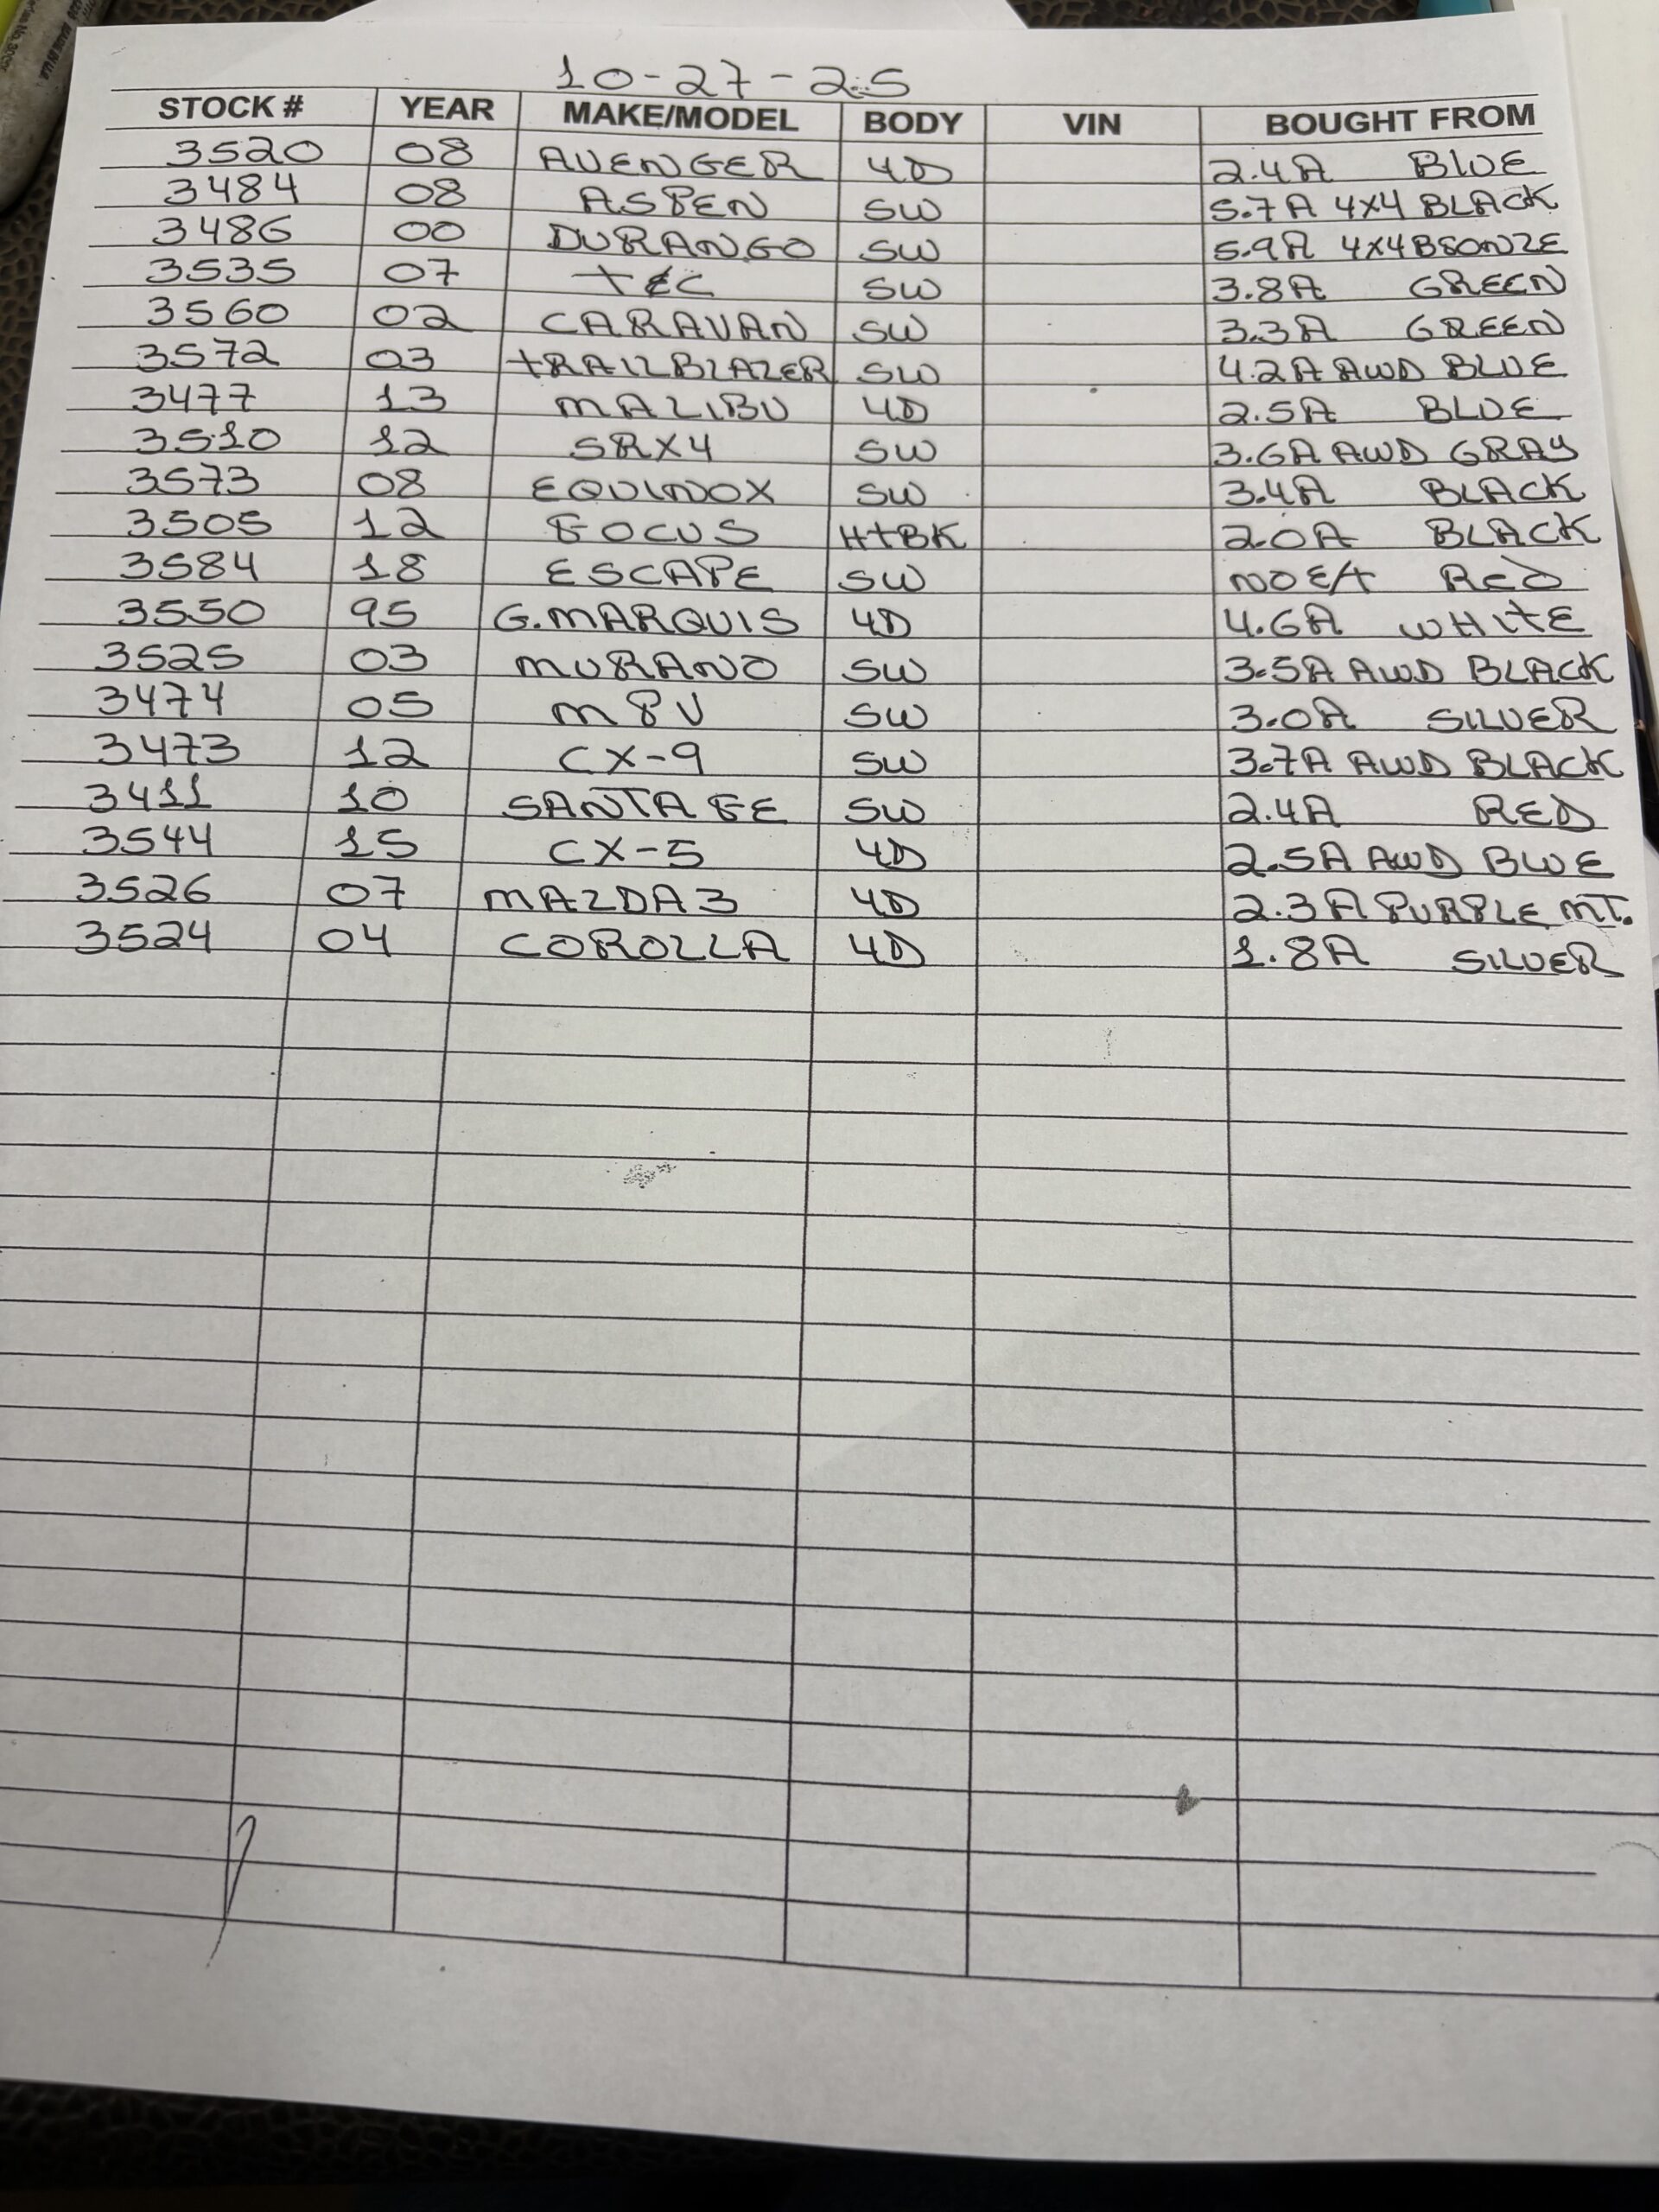 10-27-25
STOCK # YEAR MAKE/MODEL BODY VIN BOUGHT FROM
3520 08 AVENGER 4D 2.4A BLUE
3484 08 ASPEN SW 5.7A 4X4 BLACK
3486 00 DURANGO SW 5.9A 4X4 BRONZE
3535 07 T&C SW 3.8A GREEN
3560 02 CARAVAN SW 3.3A GREEN
3572 03 TRAILBLAZER SW 4.2A AWD BLUE
3477 13 MALIBU 4D 2.5A BLUE
3510 12 SRX4 SW 3.6A AWD GRAY
3573 08 EQUINOX SW 3.4A BLACK
3505 12 FOCUS HTBK 2.0A BLACK
3584 18 ESCAPE SW NO E/T RED
3550 95 G.MARQUIS 4D 4.6A WHITE
3525 03 MURANO SW 3.5A AWD BLACK
3474 05 MPV SW 3.0A SILVER
3473 12 CX-9 SW 3.7A AWD BLACK
3411 10 SANTA FE SW 2.4A RED
3544 15 CX-5 4D 2.5A AWD BLUE
3526 07 MAZDA 3 4D 2.3A PURPLE MT.
3524 04 COROLLA 4D 1.8A SILVER